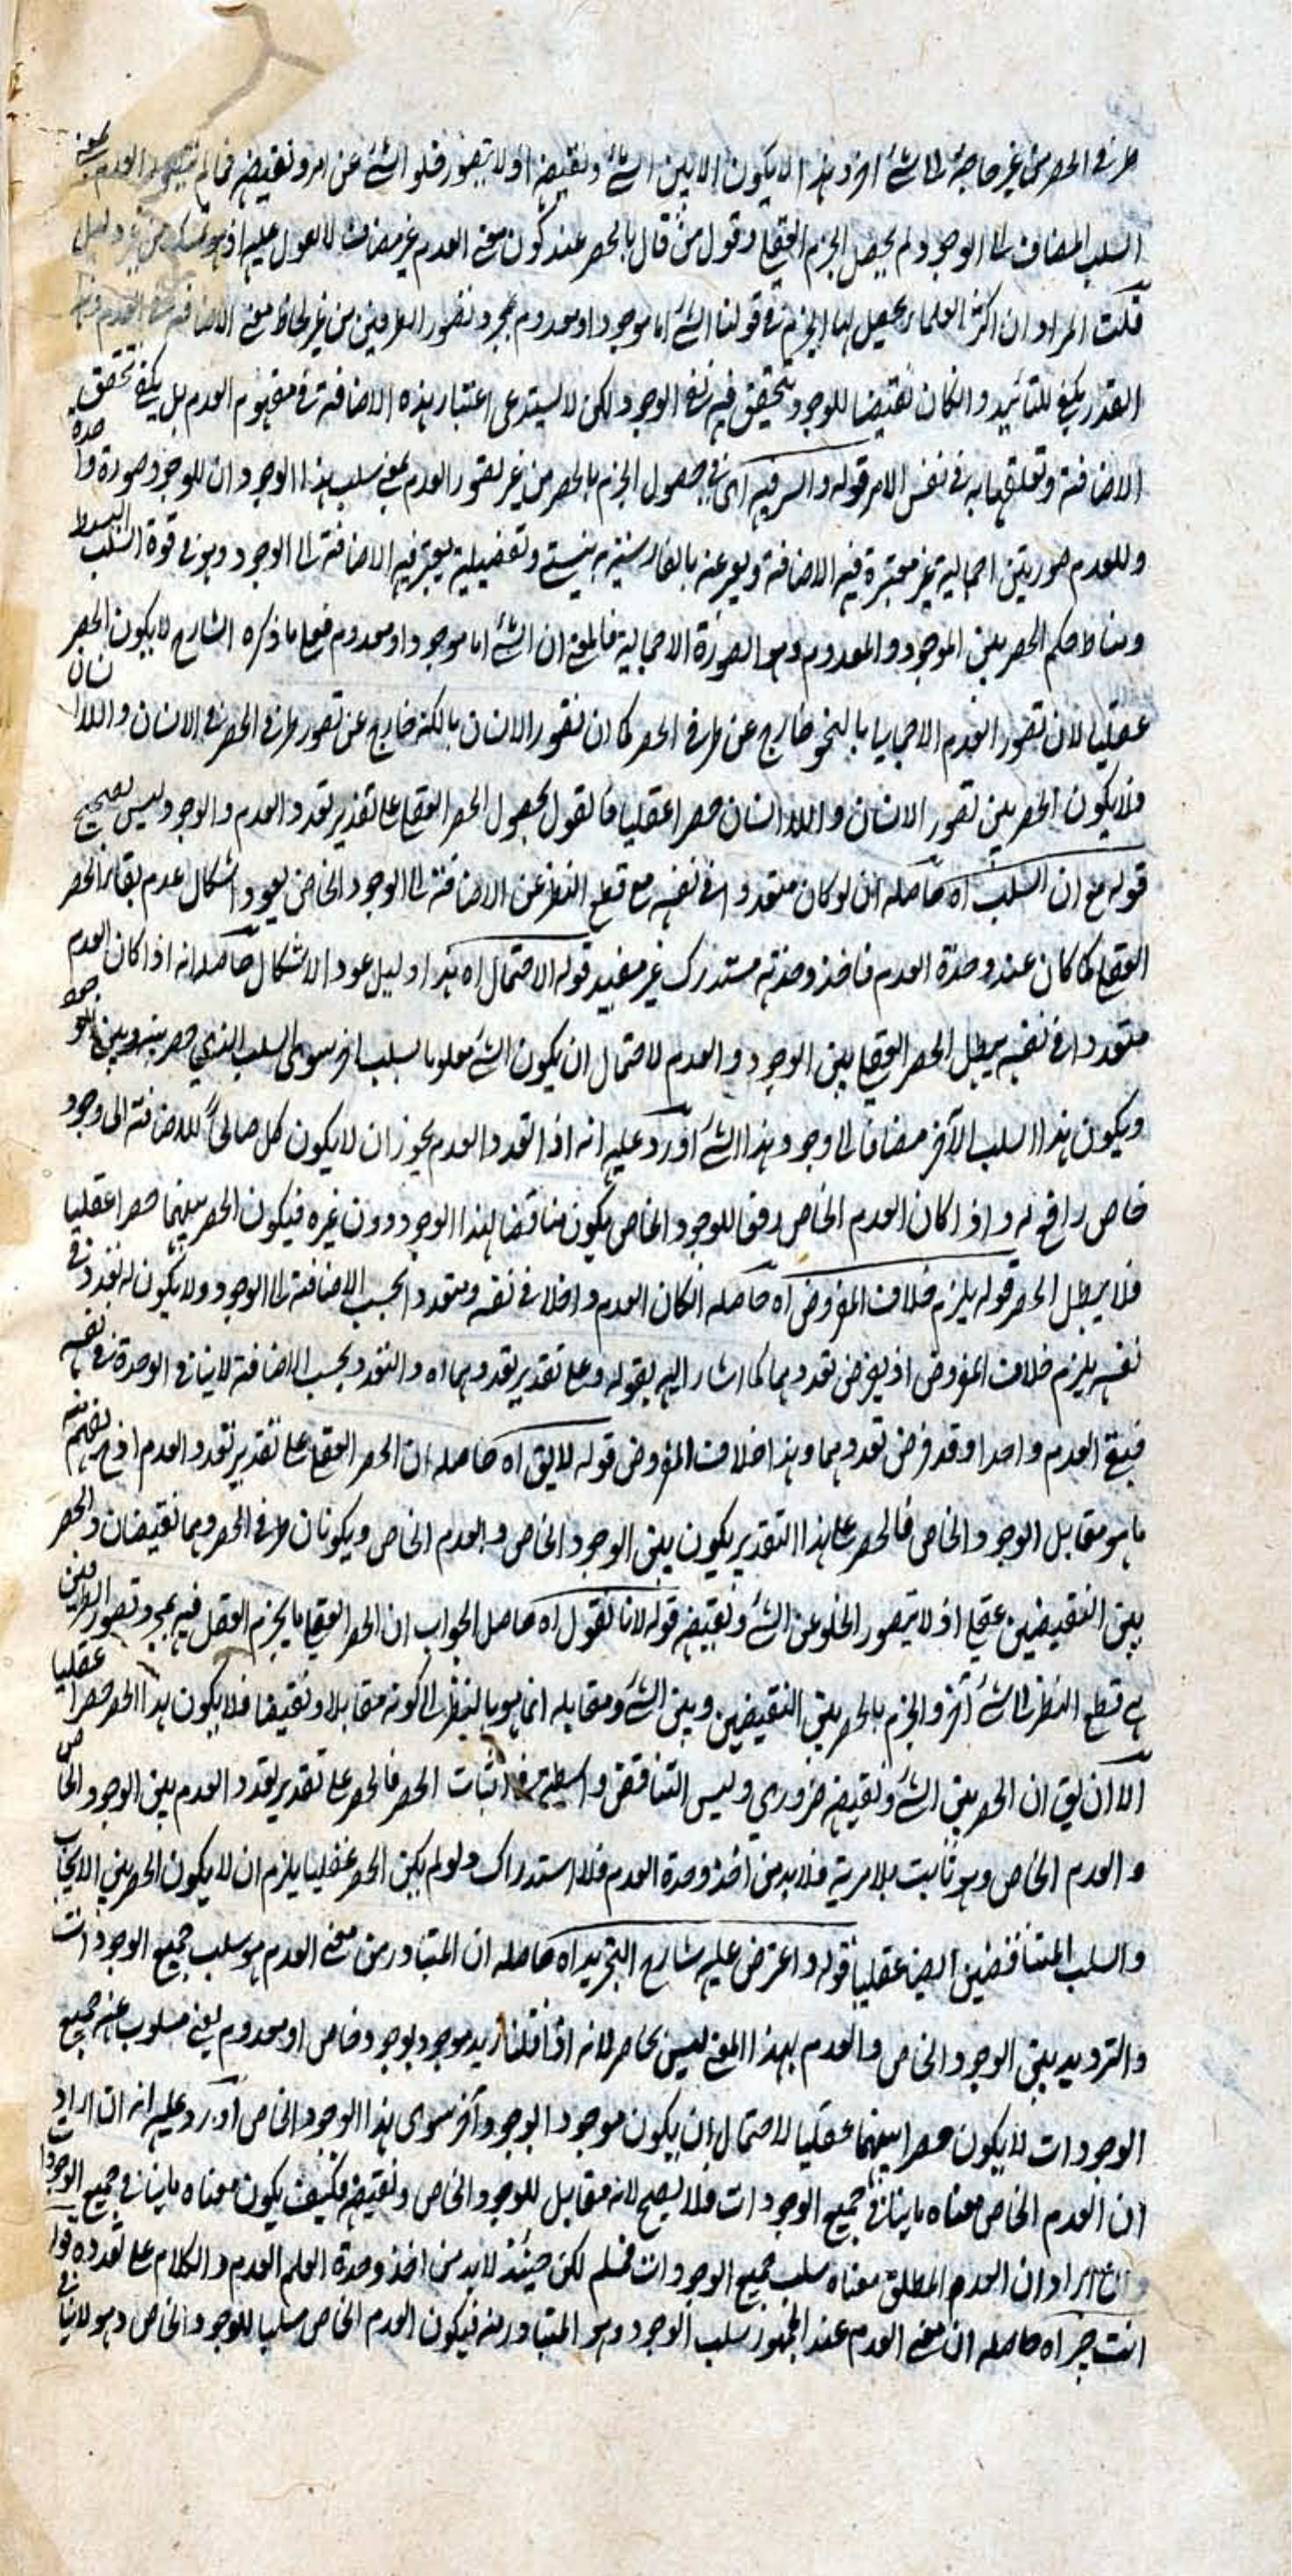 طرفي الحصر من غير حاجة الى شئ اخر وهذا لا يكون الا بين الشئ ونقيضه اذ لا يتصور خلو الشئ عن امر ونقيضه فما لم العدم بمعنى
السلب المضاف الى الوجود لم يحصل الجزم العقلي وقول من قال بالحصر عند كون معنى العدم غير مضاف لا يعول عليه اذ هو من غير دليل
قلت المراد ان اكثر العلماء يحصل لهم الجزم في قولنا الشئ اما موجود او معدوم بمجرد تصور الطرفين من غير لحاظ معنى الاضافة العدم وهذا
القدر يكفي للتائيد وان كان نقيضا للوجود يتحقق فيه نفي الوجود لكن لا يستدعي اعتبار هذه الاضافة في مفهوم العدم بل يكفي تحقق
الاضافة وتعلقها به في نفس الامر قوله والسر فيه اى في حصول الجزم بالحصر من غير تصور العدم بمعنى سلب هذا الوجود ان للوجود صورة واحدة
وللعدم صورتين اجمالية غير معتبرة فيه الاضافة ويعبر عنه بالفارسية به نيستي وتفصيلية يعتبر فيه الاضافة الى الوجود وهو في قوة السلب البسيط
ومناط حكم الحصر بين الموجود والمعدوم وهو الصورة الاجمالية فالمعنى ان الشئ اما موجود او معدوم فعلى ما ذكره الشارح لا يكون الحصر
عقليا لان تصور العدم الاجمالي بالنحو خارج عن طرفي الحصر كما ان تصور الانسان بالكنه خارج عن تصور طرفي الحصر في الانسان واللاانسان
فلا يكون الحصر بين تصور الانسان واللاانسان حصرا عقليا فالقول بحصول الحصر العقلي على تقدير تعدد العدم والوجود ليس بصحيح
قوله مع ان السلب اه حاصله ان لو كان متعددا في نفسه مع قطع النظر عن الاضافة الى الوجود الخاص يعود اشكال عدم بقاء الحصر
العقلي كما كان عند وحدة العدم فاخذ وحدته مستدرك غير مفيد قوله لاحتمال اه هذا دليل عود الاشكال حاصله انه اذا كان العدم
متعددا في نفسه يبطل الحصر العقلي بين الوجود والعدم لاحتمال ان يكون الشئ مسلوبا بسلب اخر سوى السلب الذي حصر بينه وبين الوجود
ويكون هذا السلب الآخر مضافا الى وجود هذا الشئ اورد عليه انه اذا تعدد العدم يجوز ان لا يكون كل صالحا للاضافة الى وجود
خاص رافع له واذا كان العدم الخاص رفعا للوجود الخاص يكون مناقضا لهذا الوجود دون غيره فيكون الحصر بينهما حصرا عقليا
فلا يبطل الحصر قوله يلزم خلاف المفروض اه حاصله ان كان العدم واحدا في نفسه وتعدد بحسب الاضافة الى الوجود ولا يكون له تعدد في
نفسه يلزم خلاف المفروض اذ يفرض تعددهما كما اشار اليه بقوله وعلى تقدير تعددهما اه والتعدد بحسب الاضافة لا ينافي الوحدة في نفسه
فيبقى العدم واحدا وقد فرض تعددهما وهذا خلاف المفروض قوله لا يق اه حاصله ان الحصر العقلي على تقدير تعدد العدم اذ يفهم منه
ما هو مقابل الوجود الخاص فالحصر على هذا التقدير يكون بين الوجود الخاص والعدم الخاص ويكونان طرفي الحصر وهما نقيضان والحصر
بين النقيضين عقلي اذ لا يتصور الخلو عن الشئ ونقيضه قوله لانا نقول اه حاصل الجواب ان الحصر العقلي ما يجزم العقل فيه بمجرد تصور الطرفين
مع قطع النظر الى شئ آخر والجزم بالحصر بين النقيضين وبين الشئ ومقابله انما هو بالنظر الى كونه مقابلا ونقيضا فلا يكون هذا الحصر حصرا عقليا
الا ان يق ان الحصر بين الشئ ونقيضه ضروري وليس التناقض واسطة في اثبات الحصر فالحصر على تقدير تعدد العدم بين الوجود الخاص
والعدم الخاص وهو ثابت بلا مرية فلا بد من اخذ وحدة العدم فلا استدراك ولو لم يكن الحصر عقليا يلزم ان لا يكون الحصر بين الايجاب
والسلب المتناقضين ايضا عقليا قوله واعترض عليه شارح التجريد اه حاصله ان المتبادر من معنى العدم هو سلب جميع الوجودات
والترديد بين الوجود الخاص والعدم بهذا المعنى ليس بحاصر لانه اذا قلنا زيد موجود بوجود خاص او معدوم يعنى مسلوب عنه جميع
الوجودات لا يكون حصرا بينهما عقليا لاحتمال ان يكون موجودا بوجود آخر سوى هذا الوجود الخاص اورد عليه انه ان اراد
ان العدم الخاص معناه ما ينافي جميع الوجودات فلا يصح لانه مقابل للوجود الخاص ونقيضه فكيف يكون معناه ما ينافي جميع الوجودات
وان اراد ان العدم المطلق معناه سلب جميع الوجودات فمسلم لكن حينئذ لا بد من اخذ وحدة العدم والكلام على تعدده قوله
انت خبير اه حاصله ان معنى العدم عند الجمهور سلب الوجود وهو المتبادر منه فيكون العدم الخاص سلبا للوجود الخاص وهو لا ينافي